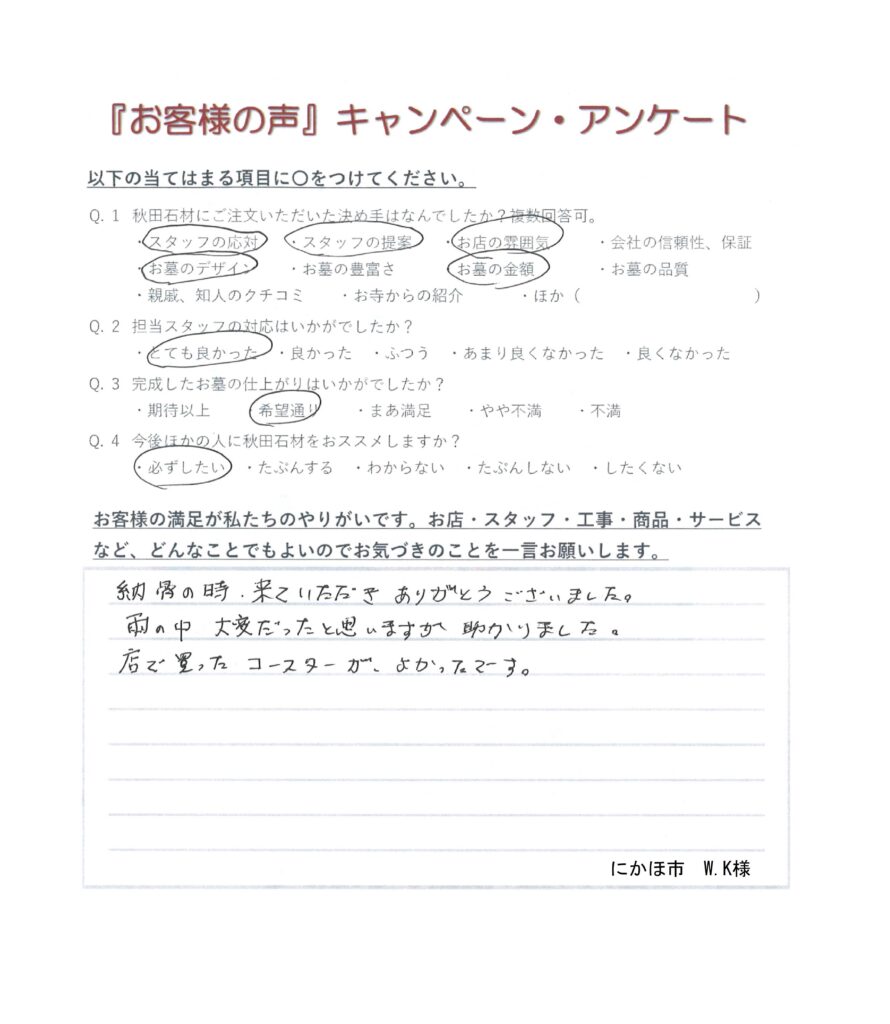 『お客様の声』キャンペーン・アンケート
以下の当てはまる項目に〇をつけてください。
Q. 1 秋田石材にご注文いただいた決め手はなんでしたか？複数回答可。
・スタッフの応対 ・スタッフの提案 ・お店の雰囲気 ・会社の信頼性、保証
・お墓のデザイン ・お墓の豊富さ ・お墓の金額 ・お墓の品質
・親戚、知人のクチコミ ・お寺からの紹介 ・ほか（ ）
Q. 2 担当スタッフの対応はいかがでしたか？
・とても良かった ・良かった ・ふつう ・あまり良くなかった ・良くなかった
Q. 3 完成したお墓の仕上がりはいかがでしたか？
・期待以上 ・希望通り ・まあ満足 ・やや不満 ・不満
Q. 4 今後ほかの人に秋田石材をおススメしますか？
・必ずしたい ・たぶんする ・わからない ・たぶんしない ・したくない
お客様の満足が私たちのやりがいです。お店・スタッフ・工事・商品・サービス
など、どんなことでもよいのでお気づきのことを一言お願いします。
納骨の時、来ていただき ありがとうございました。
雨の中 大変だったと思いますが 助かりました。
店で買った コースターが、よかったです。
にかほ市 W.K様